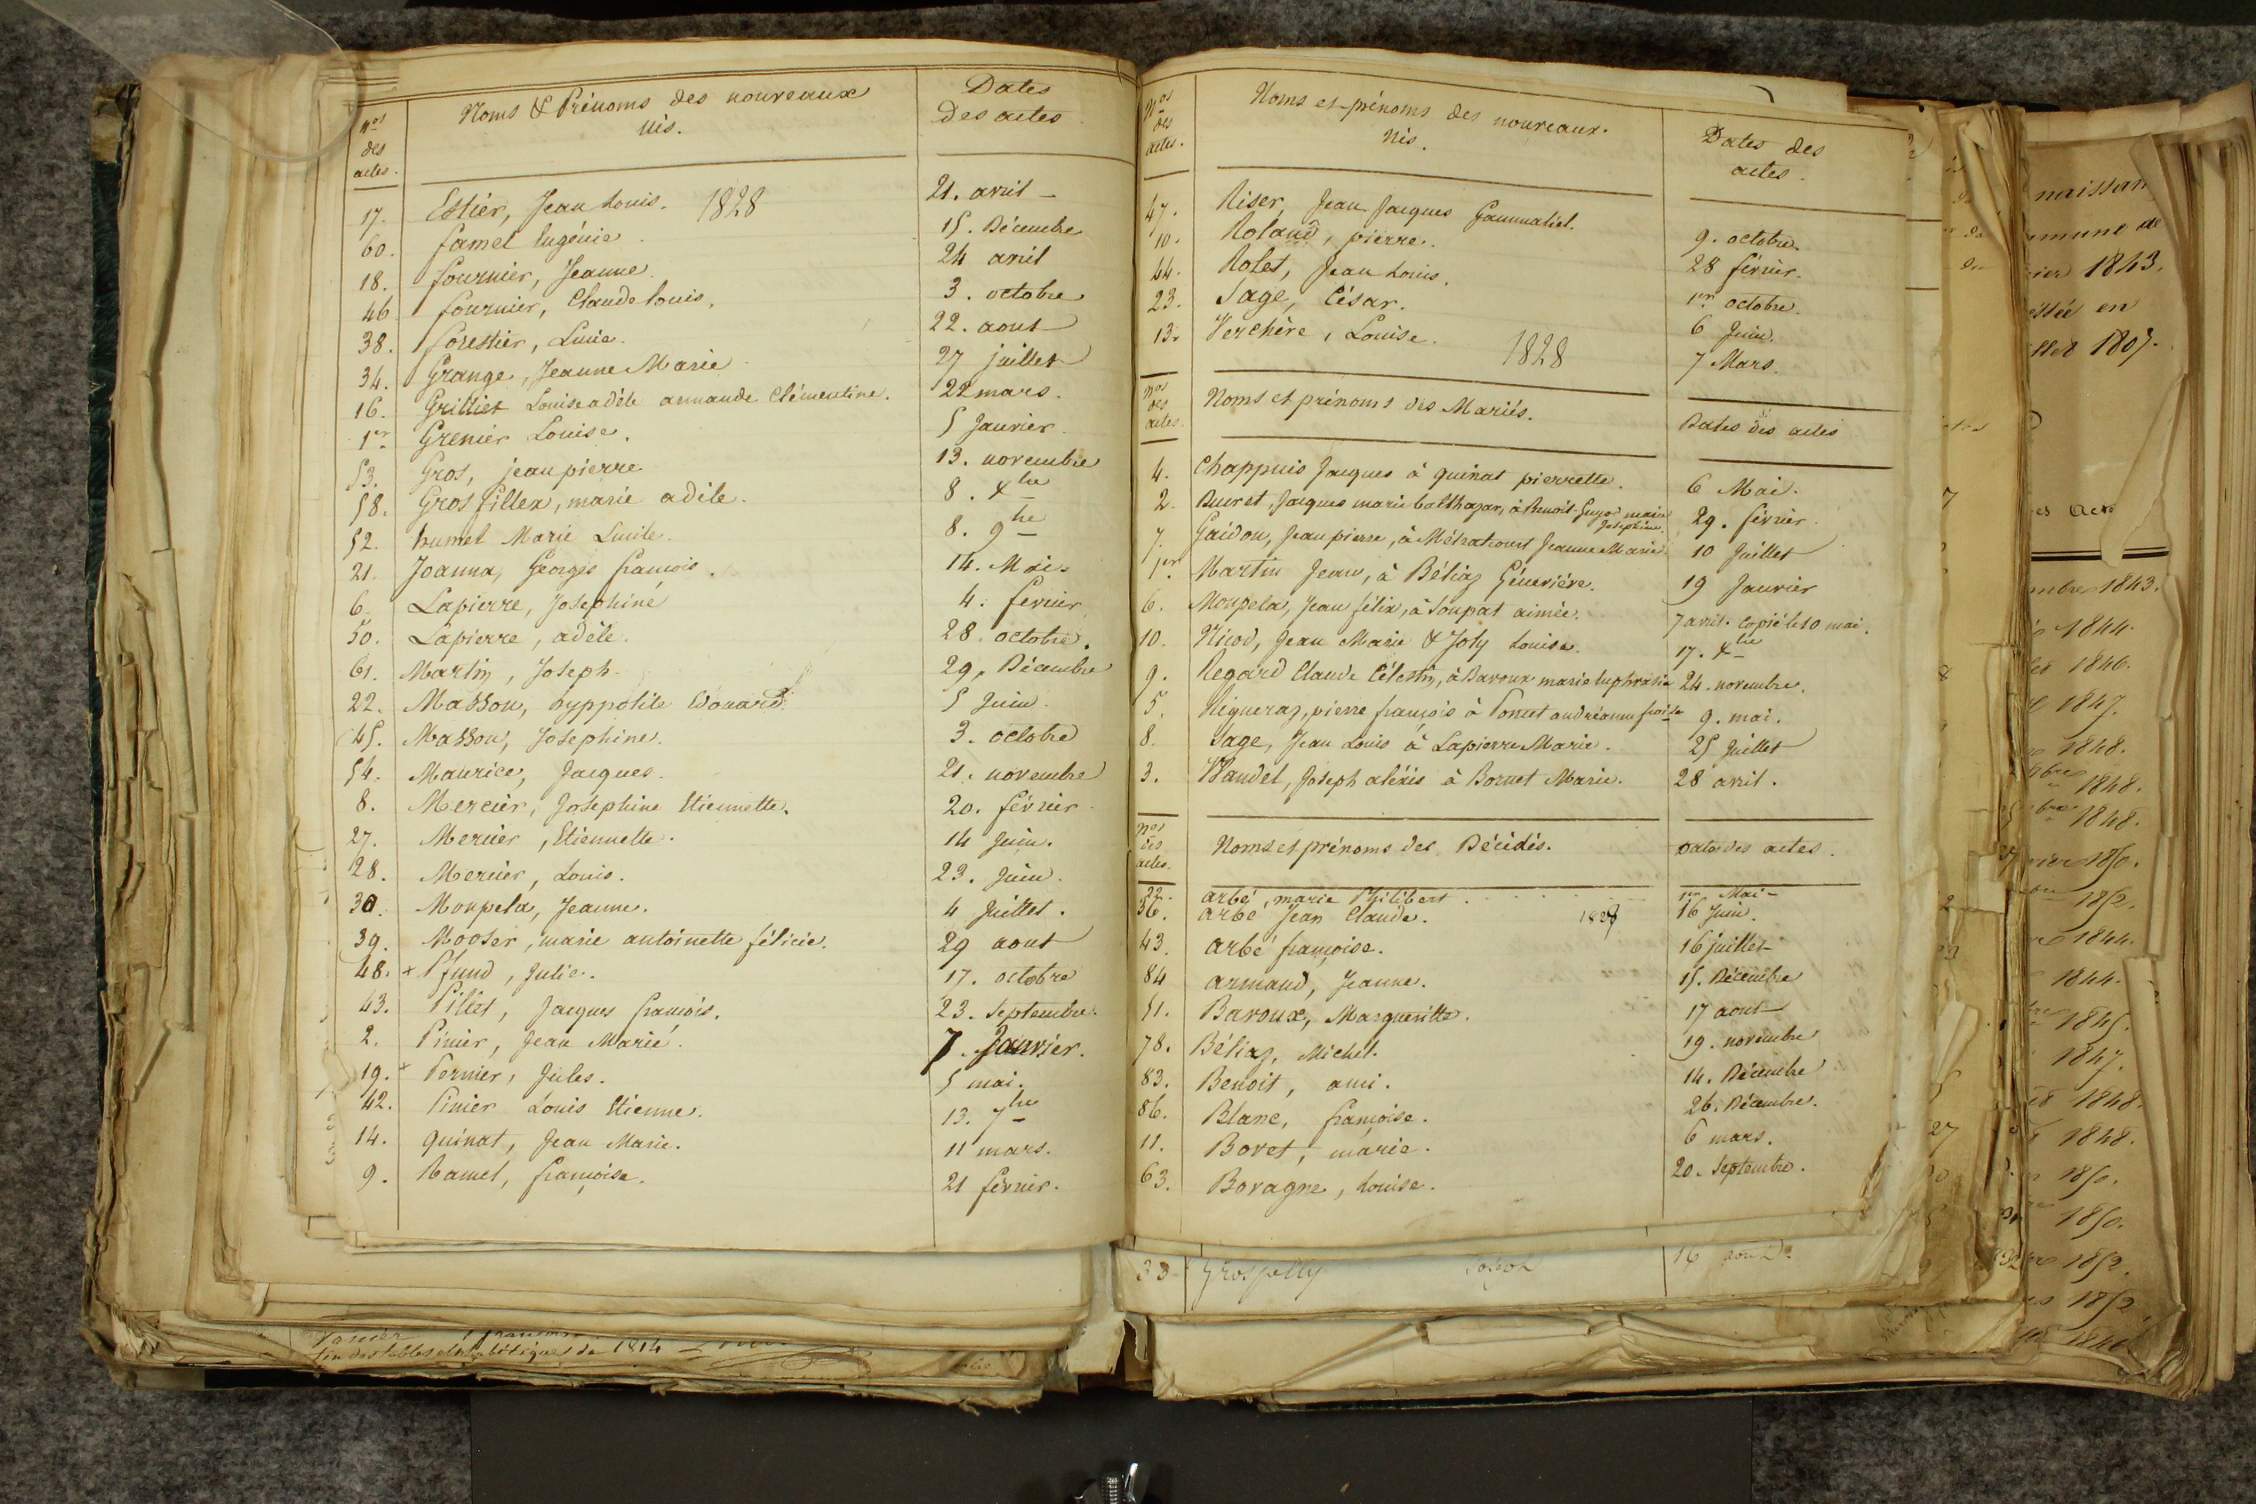 nos des actes.
Noms & Prénoms des nouveaux nés.
Dates des actes
17. Estier, Jean Louis. 1828 21. avril
60. famel Eugénie 15. Décembre
18. fournier, Jeanne. 24 avril
46 fournier, Claude louis. 3. octobre
38. forestier, Lucie. 22. aout
34. Grange, Jeanne Marie 27 juillet
16. Grilliet Louise adèle armande Clémentine. 22 mars.
1er Grenier Louise. 5 Janvier.
53. Gros, jean pierre 13. novembre
58. Grosfillex, marie adèle. 8. Xbre
52. humel Marie Lucile. 8. 9bre
21. Joanna, Georges françois. 14. Mai.
6. Lapierre, Josephine 4. fevrier
50. Lapierre, adèle. 28. octobre.
61. Martin, Joseph. 29. Décembre
22. Masson, hyppolite Edouard. 5 Juin.
45. Masson, Josephine. 3. octobre
54. Maurice, Jacques. 21. novembre
8. Mercier, Josephine Etiennette. 20. février
27. Mercier, Etiennette. 14 Juin.
28. Mercier, Louis. 23. Juin.
30. Monpela, Jeanne. 4 Juillet.
39. Mooser, marie antoinette félicie. 29 aout
48. x Pfund, Julie. 17. octobre
43. Pillet, Jacques françois. 23. Septembre.
2. Pinier, Jean Marie. 7. Janvier.
19. x Pernier, Jules. 5 mai.
42. Pinier Louis Etienne. 13. 7bre
14. quinat, Jean Marie. 11 mars.
9. Ramel, françoise. 21 février.
Nos des actes.
Noms et prénoms des nouveaux nés.
Dates des actes.
47. Riser, Jean Jacques Gammaliel. 9. octobre.
10. Roland, pierre. 28 février.
44. Rolet, Jean Louis. 1er octobre.
23. Sage, César. 6 Juin.
13. Verchère, Louise. 1828 7 Mars.
nos des actes.
Noms et prénoms des Mariés.
Dates des actes
4. Chappuis Jacques à quinat pierrette. 6 Mai.
2. Ducret, Jacques marie balthazar, à Benoit-Guyod marie Josephine. 29. février.
7. Gaidon, Jean pierre, à Métratcourt Jeanne Marie. 10 Juillet
1er Martin Jean, à Béliaz Géneviéve. 19 Janvier
6. Monpela, Jean félix, à Soupat aimée. 7 avril. copié le 10 mai.
10. Nicod, Jean Marie & Joly Louise. 17. Xbre
9. Regard Claude Célestin, à Baroux marie Euphrasie 24. novembre.
5. Rigueraz, pierre françois à Poncet andréanne froise 9. mai.
8. Sage, Jean Louis à Lapierre Marie. 25 Juillet
3. Vandel, Joseph alexis à Bornet Marie. 28 avril.
nos des actes.
Noms et prénoms des Décédés.
Dates des actes.
22. arbé, marie Philibert. 1er Mai
36. arbé Jean Claude. 1828 16 Juin.
43. arbé françoise. 16 juillet
84 armand, Jeanne. 15. Décembre
51. Baroux, Marguerite. 17 aout
78. Béliaz, Michel. 19. novembre
83. Benoit, ami. 14. Décembre
86. Blanc, françoise. 26. Décembre.
11. Boret, marie. 6 mars.
63. Boragne, Louise. 20. Septembre.
33 Grosfelly Joseph
fin des tables alphabétiques de 1814
1843.
1807.
1843.
1844.
1846.
1847.
1848.
1848.
1848.
1850.
1852.
1844.
1844.
1845.
1847.
1848.
1848.
1850.
1850.
1852.
1852